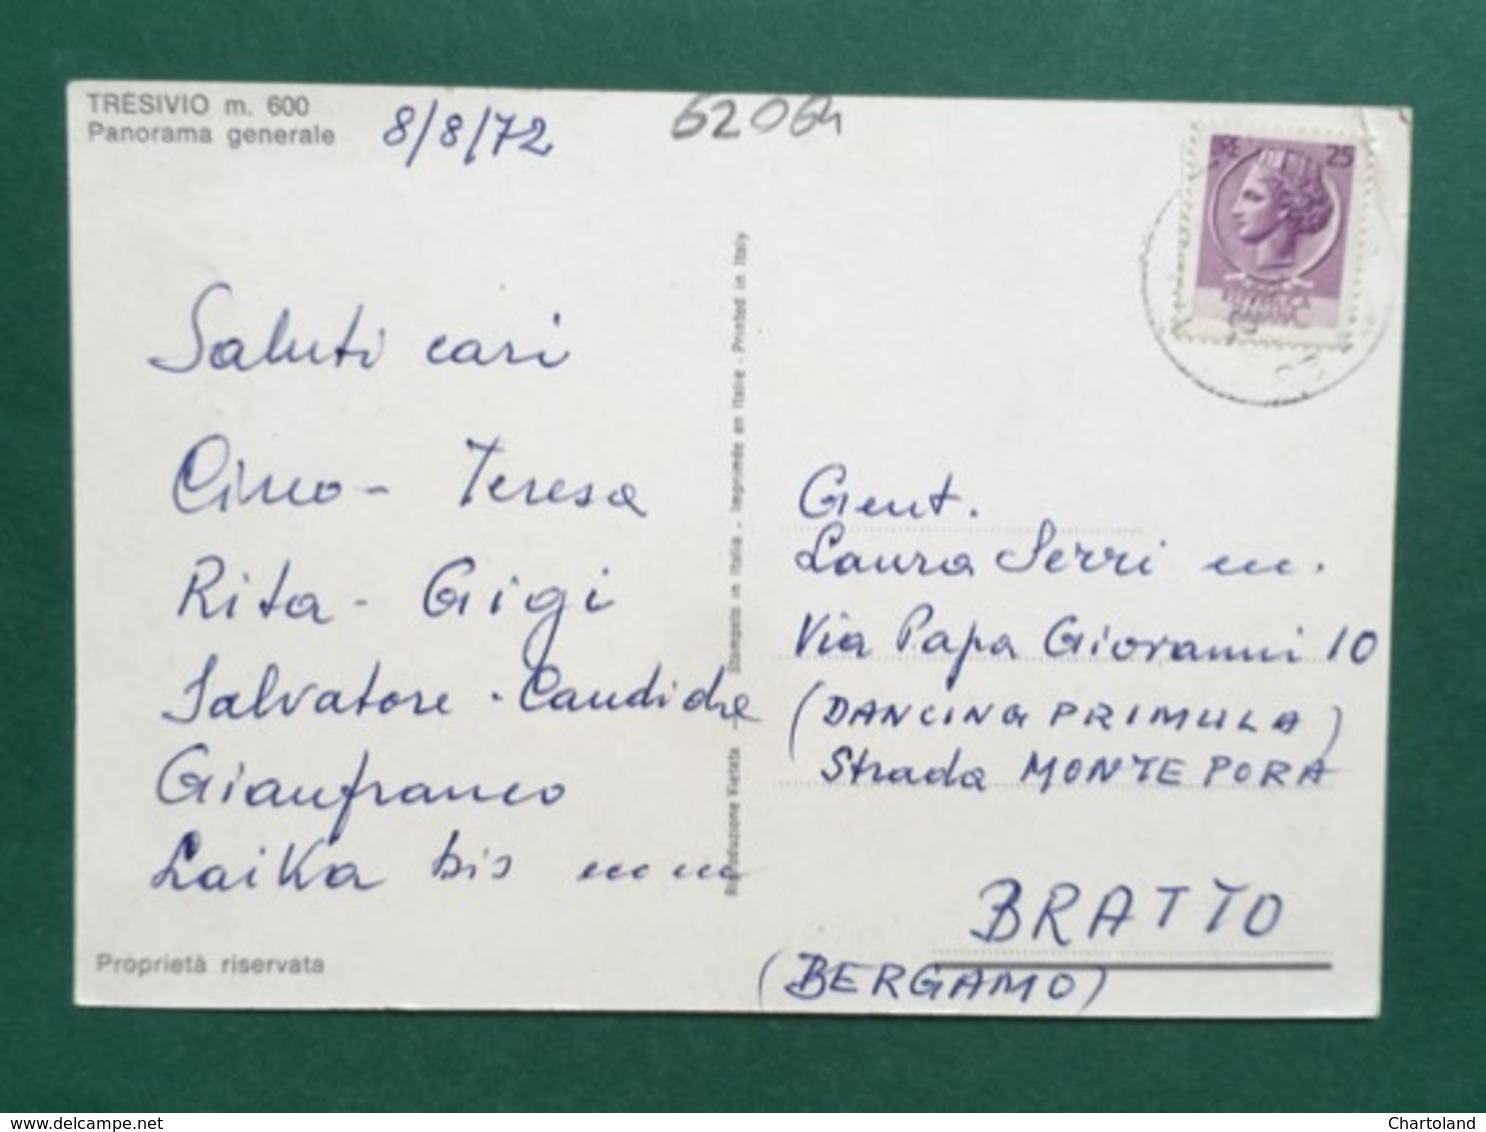 TRESIVIO m. 600
Panorama generale
8/8/72
62064
LIRE 25
REPVBBLICA
ITALIANA
Saluti cari
Circo - Teresa
Rita - Gigi
Salvatore - Candida e
Gianfranco
Laika bis
Proprietà riservata
Riproduzione Vietata - Stampato in Italia - Imprimée en Italie - Printed in Italy
Gent.
Laura Serri m.
Via Papa Giovanni 10
(DANCING PRIMULA)
Strada MONTE PORA
BRATTO
(BERGAMO)
delcampe.net
Chartoland